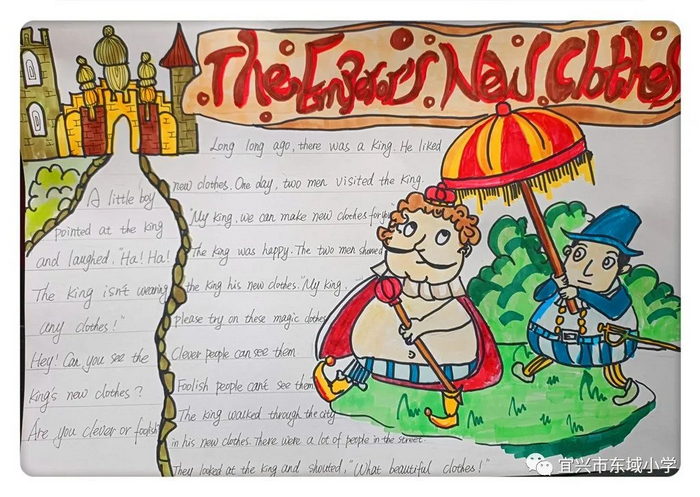 The Emperor's New Clothes
Long long ago, there was a king. He liked
new clothes. One day, two men visited the king.
"My king, we can make new clothes for you.
The king was happy. The two men showed
the king his new clothes. "My king,
please try on these magic clothes
Clever people can see them
Foolish people can't see them
The king walked through the city
in his new clothes. There were a lot of people in the street.
They looked at the king and shouted, "What beautiful clothes!"
A little boy
pointed at the king
and laughed, "Ha! Ha!
The king isn't wearing
any clothes!"
Hey! Can you see the
king's new clothes?
Are you clever or foolish
宜兴市东域小学